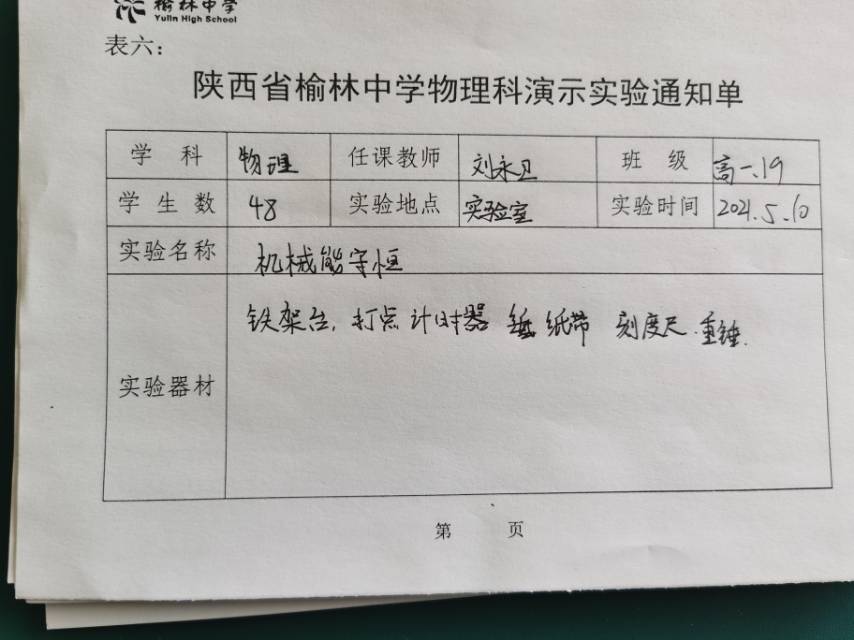 榆林中学
Yulin High School
表六：
陕西省榆林中学物理科演示实验通知单
学科 物理 任课教师 刘永卫 班级 高一.19
学生数 48 实验地点 实验室 实验时间 2021.5.10
实验名称 机械能守恒
实验器材 铁架台，打点计时器 纸带 刻度尺.重锤.
第 页